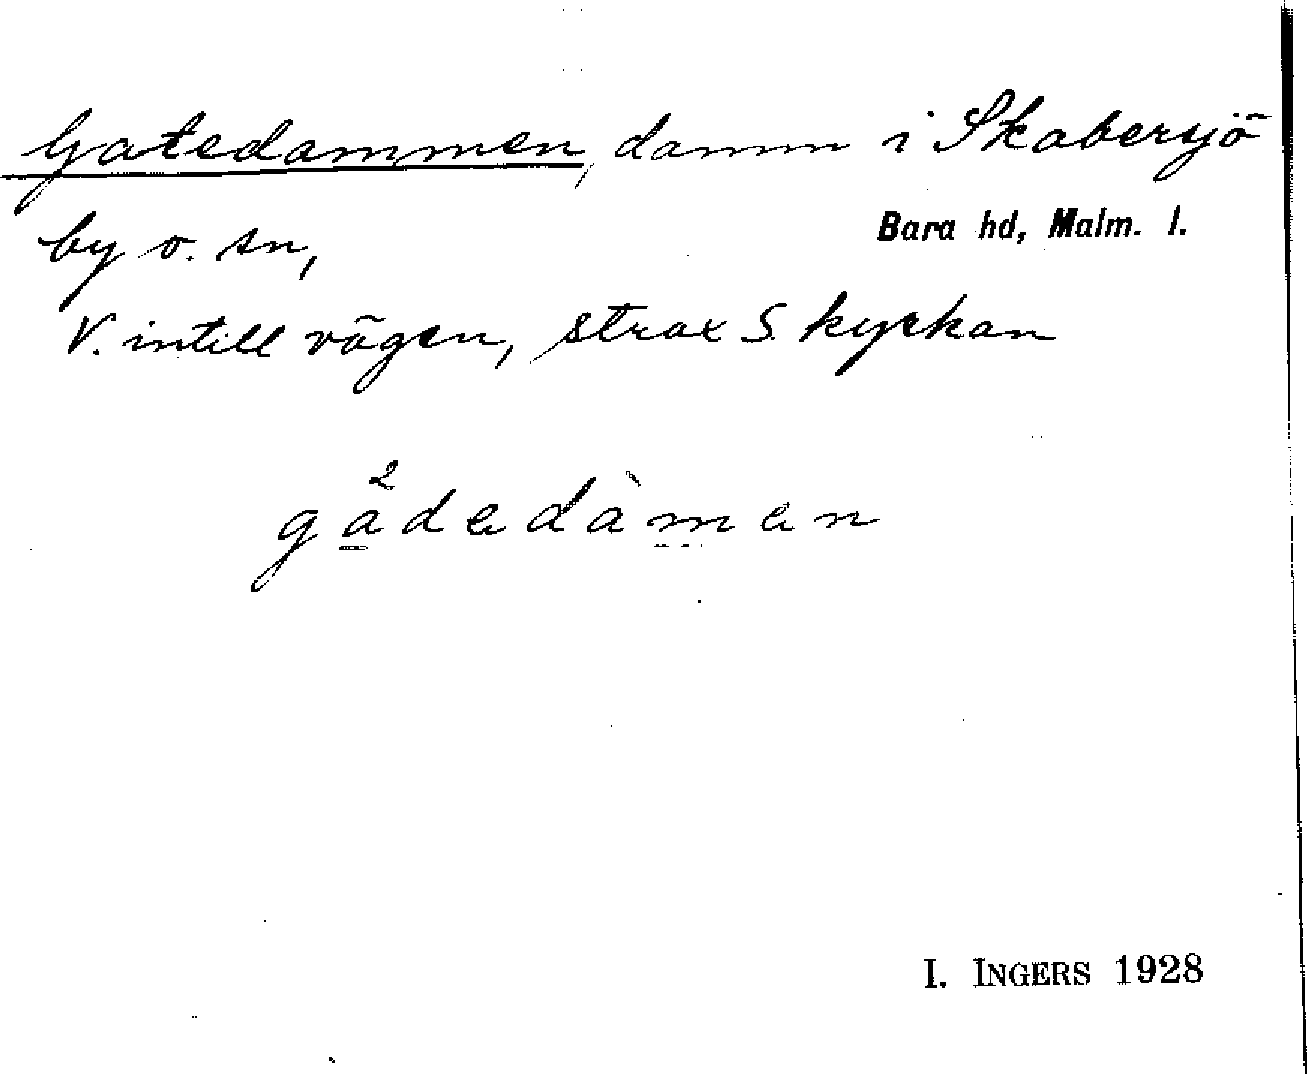 Gatedammen, damm i Skabersjö
by o. sn, Bara hd, Malm. l.
V. intill vägen, strax S. kyrkan
gådedàmen
I. INGERS 1928